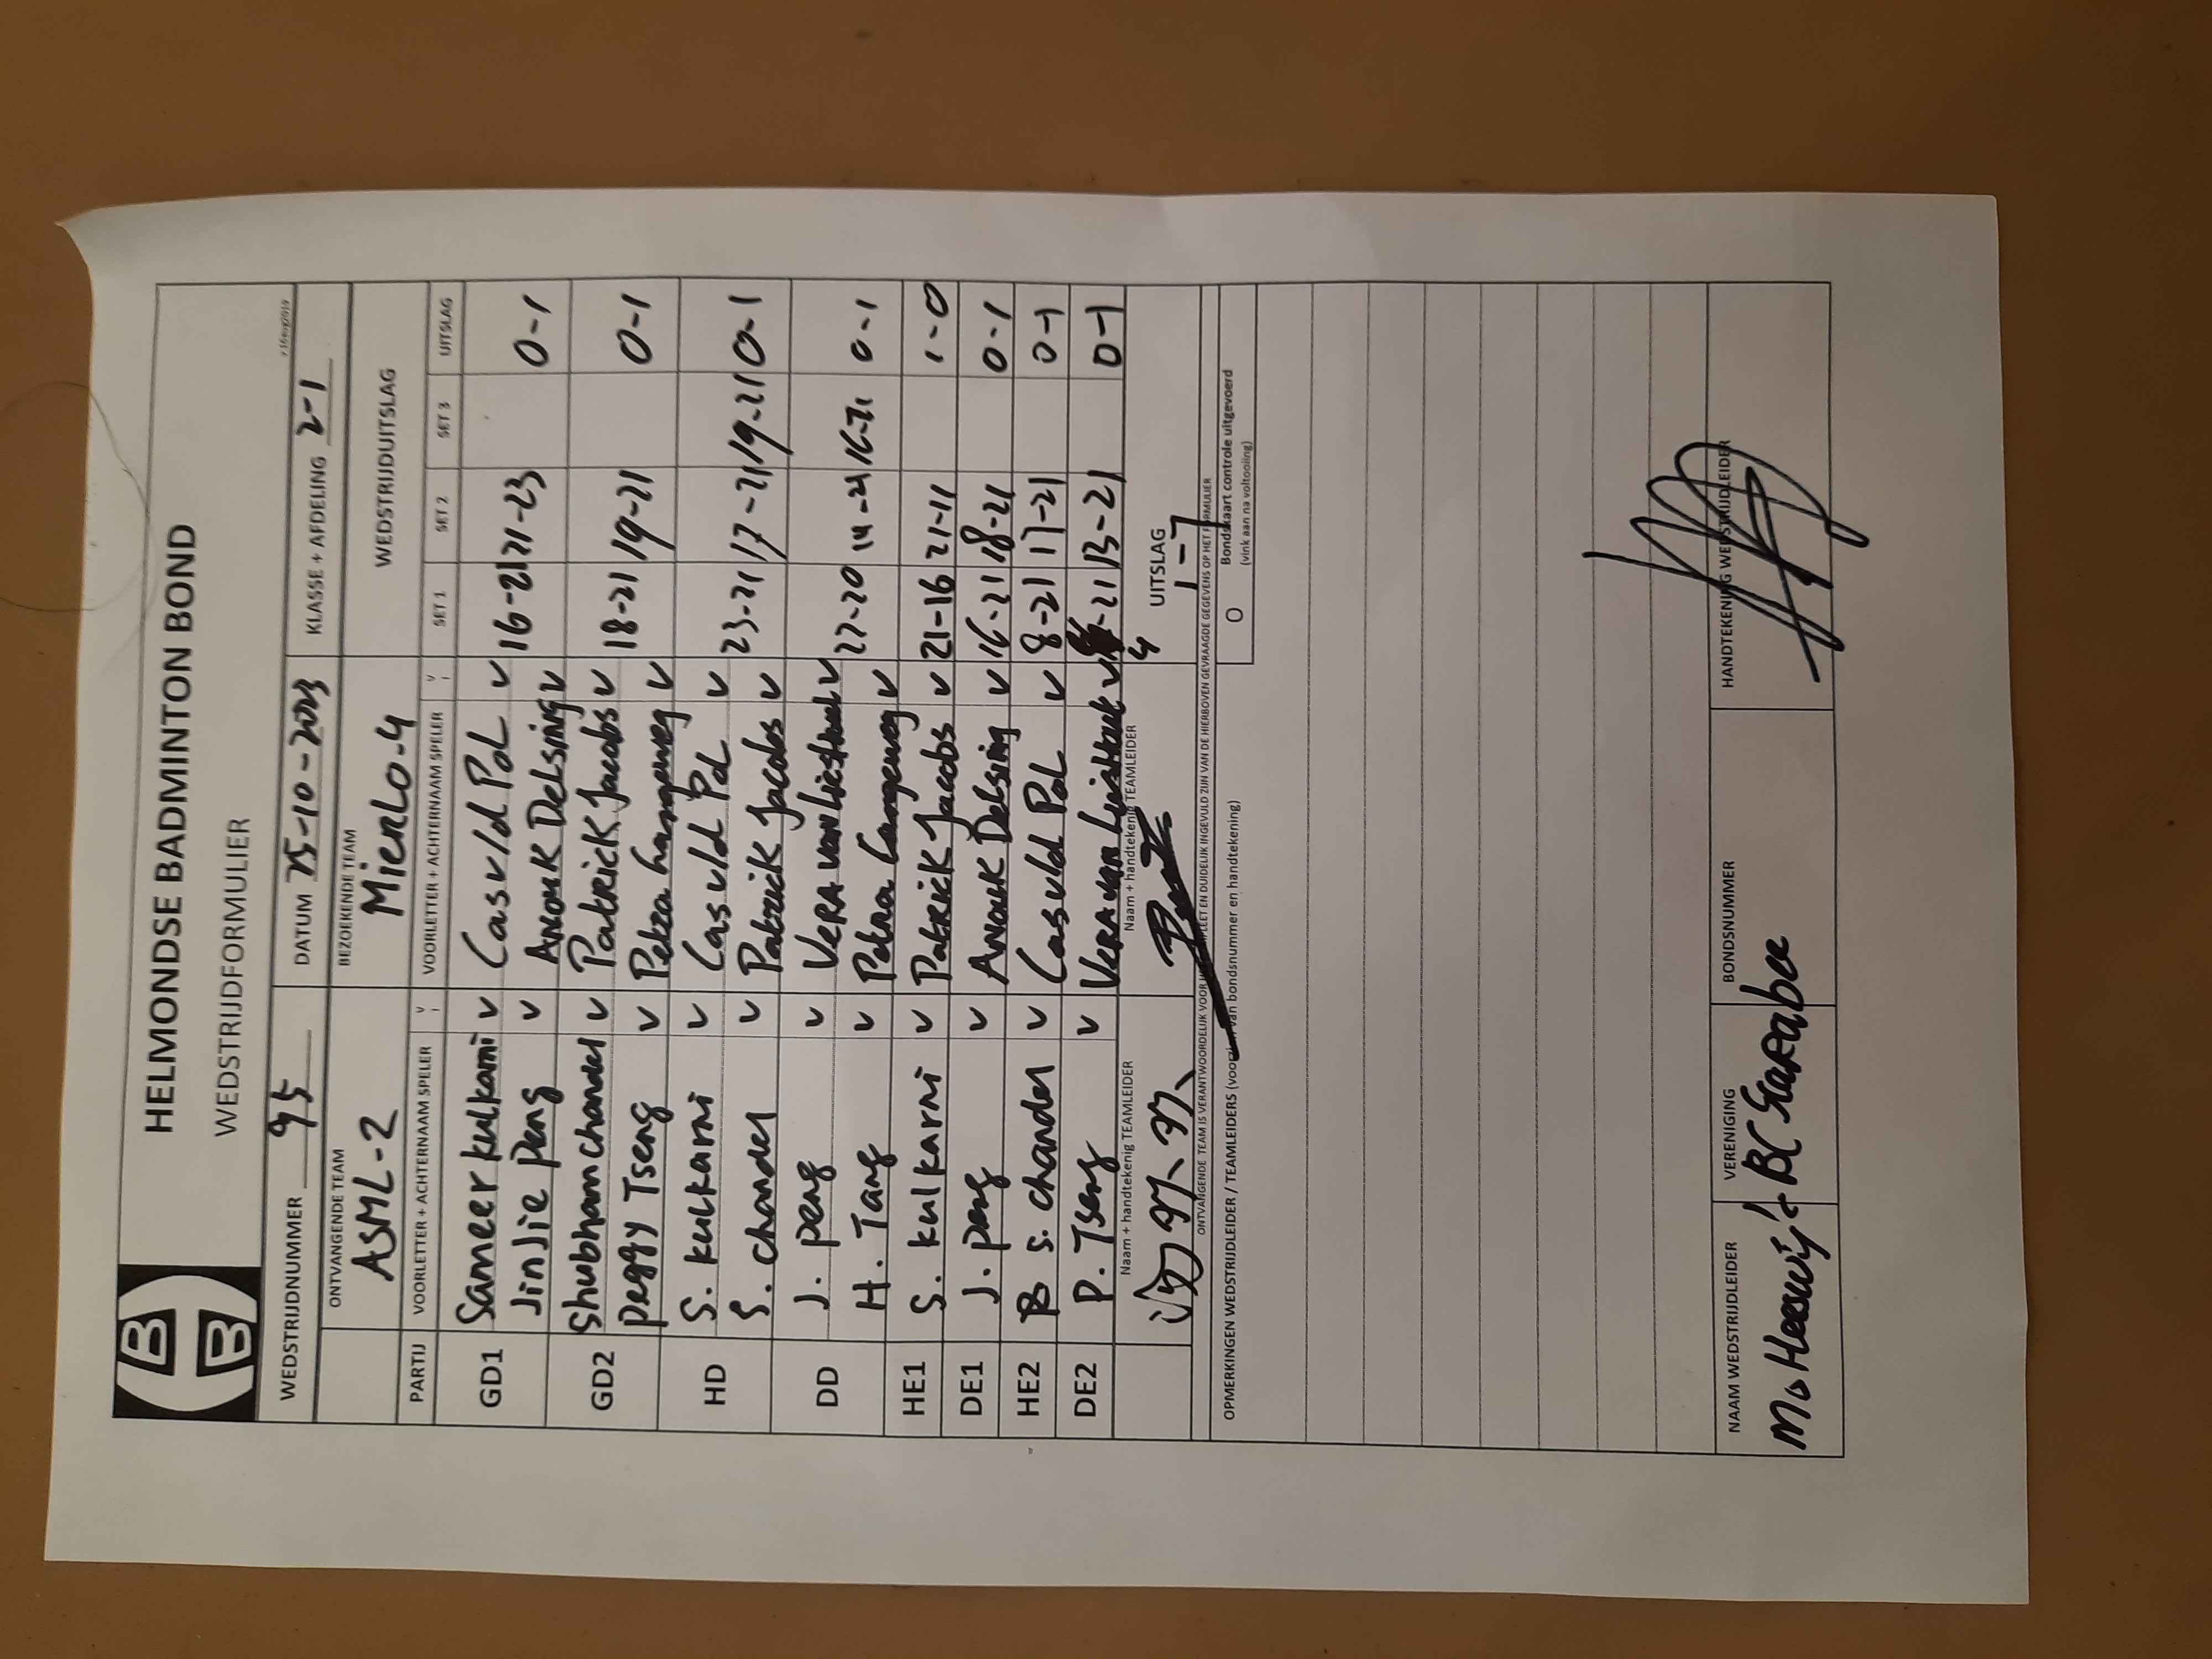 HELMONDSE BADMINTON BOND
WEDSTRIJDFORMULIER
v.16aug2019
WEDSTRIJDNUMMER 95 DATUM 25-10-2023 KLASSE + AFDELING 2-1
ONTVANGENDE TEAM BEZOEKENDE TEAM WEDSTRIJDUITSLAG
ASML-2 Mierlo-4
PARTIJ VOORLETTER + ACHTERNAAM SPELER V VOORLETTER + ACHTERNAAM SPELER V SET 1 SET 2 SET 3 UITSLAG
GD1 Sameer kulkarni v Cas v/d Pol v 16-21 21-23 0-1
Jinjie Peng v Anouk Delsing v
GD2 Shubham chandel v Patrick Jacobs v 18-21 19-21 0-1
Peggy Tseng v Petra Campeneg v
HD S. kulkarni v Cas v/d Pol v 23-21 17-21 19-21 0-1
S. chandel v Patrick Jacobs v
DD J. peng v Vera van Liesthout v 22-20 14-21 16-21 0-1
H. Tang v Petra Campeneg v
HE1 S. kulkarni v Patrick Jacobs v 21-16 21-11 1-0
DE1 J. peng v Anouk Delsing v 16-21 18-21 0-1
HE2 S. chandel v Cas v/d Pol v 8-21 17-21 0-1
DE2 P. Tseng v Vera van Liesthout v -21 13-21 0-1
4
Naam + handtekenig TEAMLEIDER Naam + handtekenig TEAMLEIDER UITSLAG
1-7
ONTVANGENDE TEAM IS VERANTWOORDELIJK VOOR HET COMPLEET EN DUIDELIJK INGEVULD ZIJN VAN DE HIERBOVEN GEVRAAGDE GEGEVENS OP HET FORMULIER
OPMERKINGEN WEDSTRIJDLEIDER / TEAMLEIDERS (voorzien van bondsnummer en handtekening)
O Bondskaart controle uitgevoerd
(vink aan na voltooiing)
NAAM WEDSTRIJDLEIDER VERENIGING BONDSNUMMER HANDTEKENING WEDSTRIJDLEIDER
BC